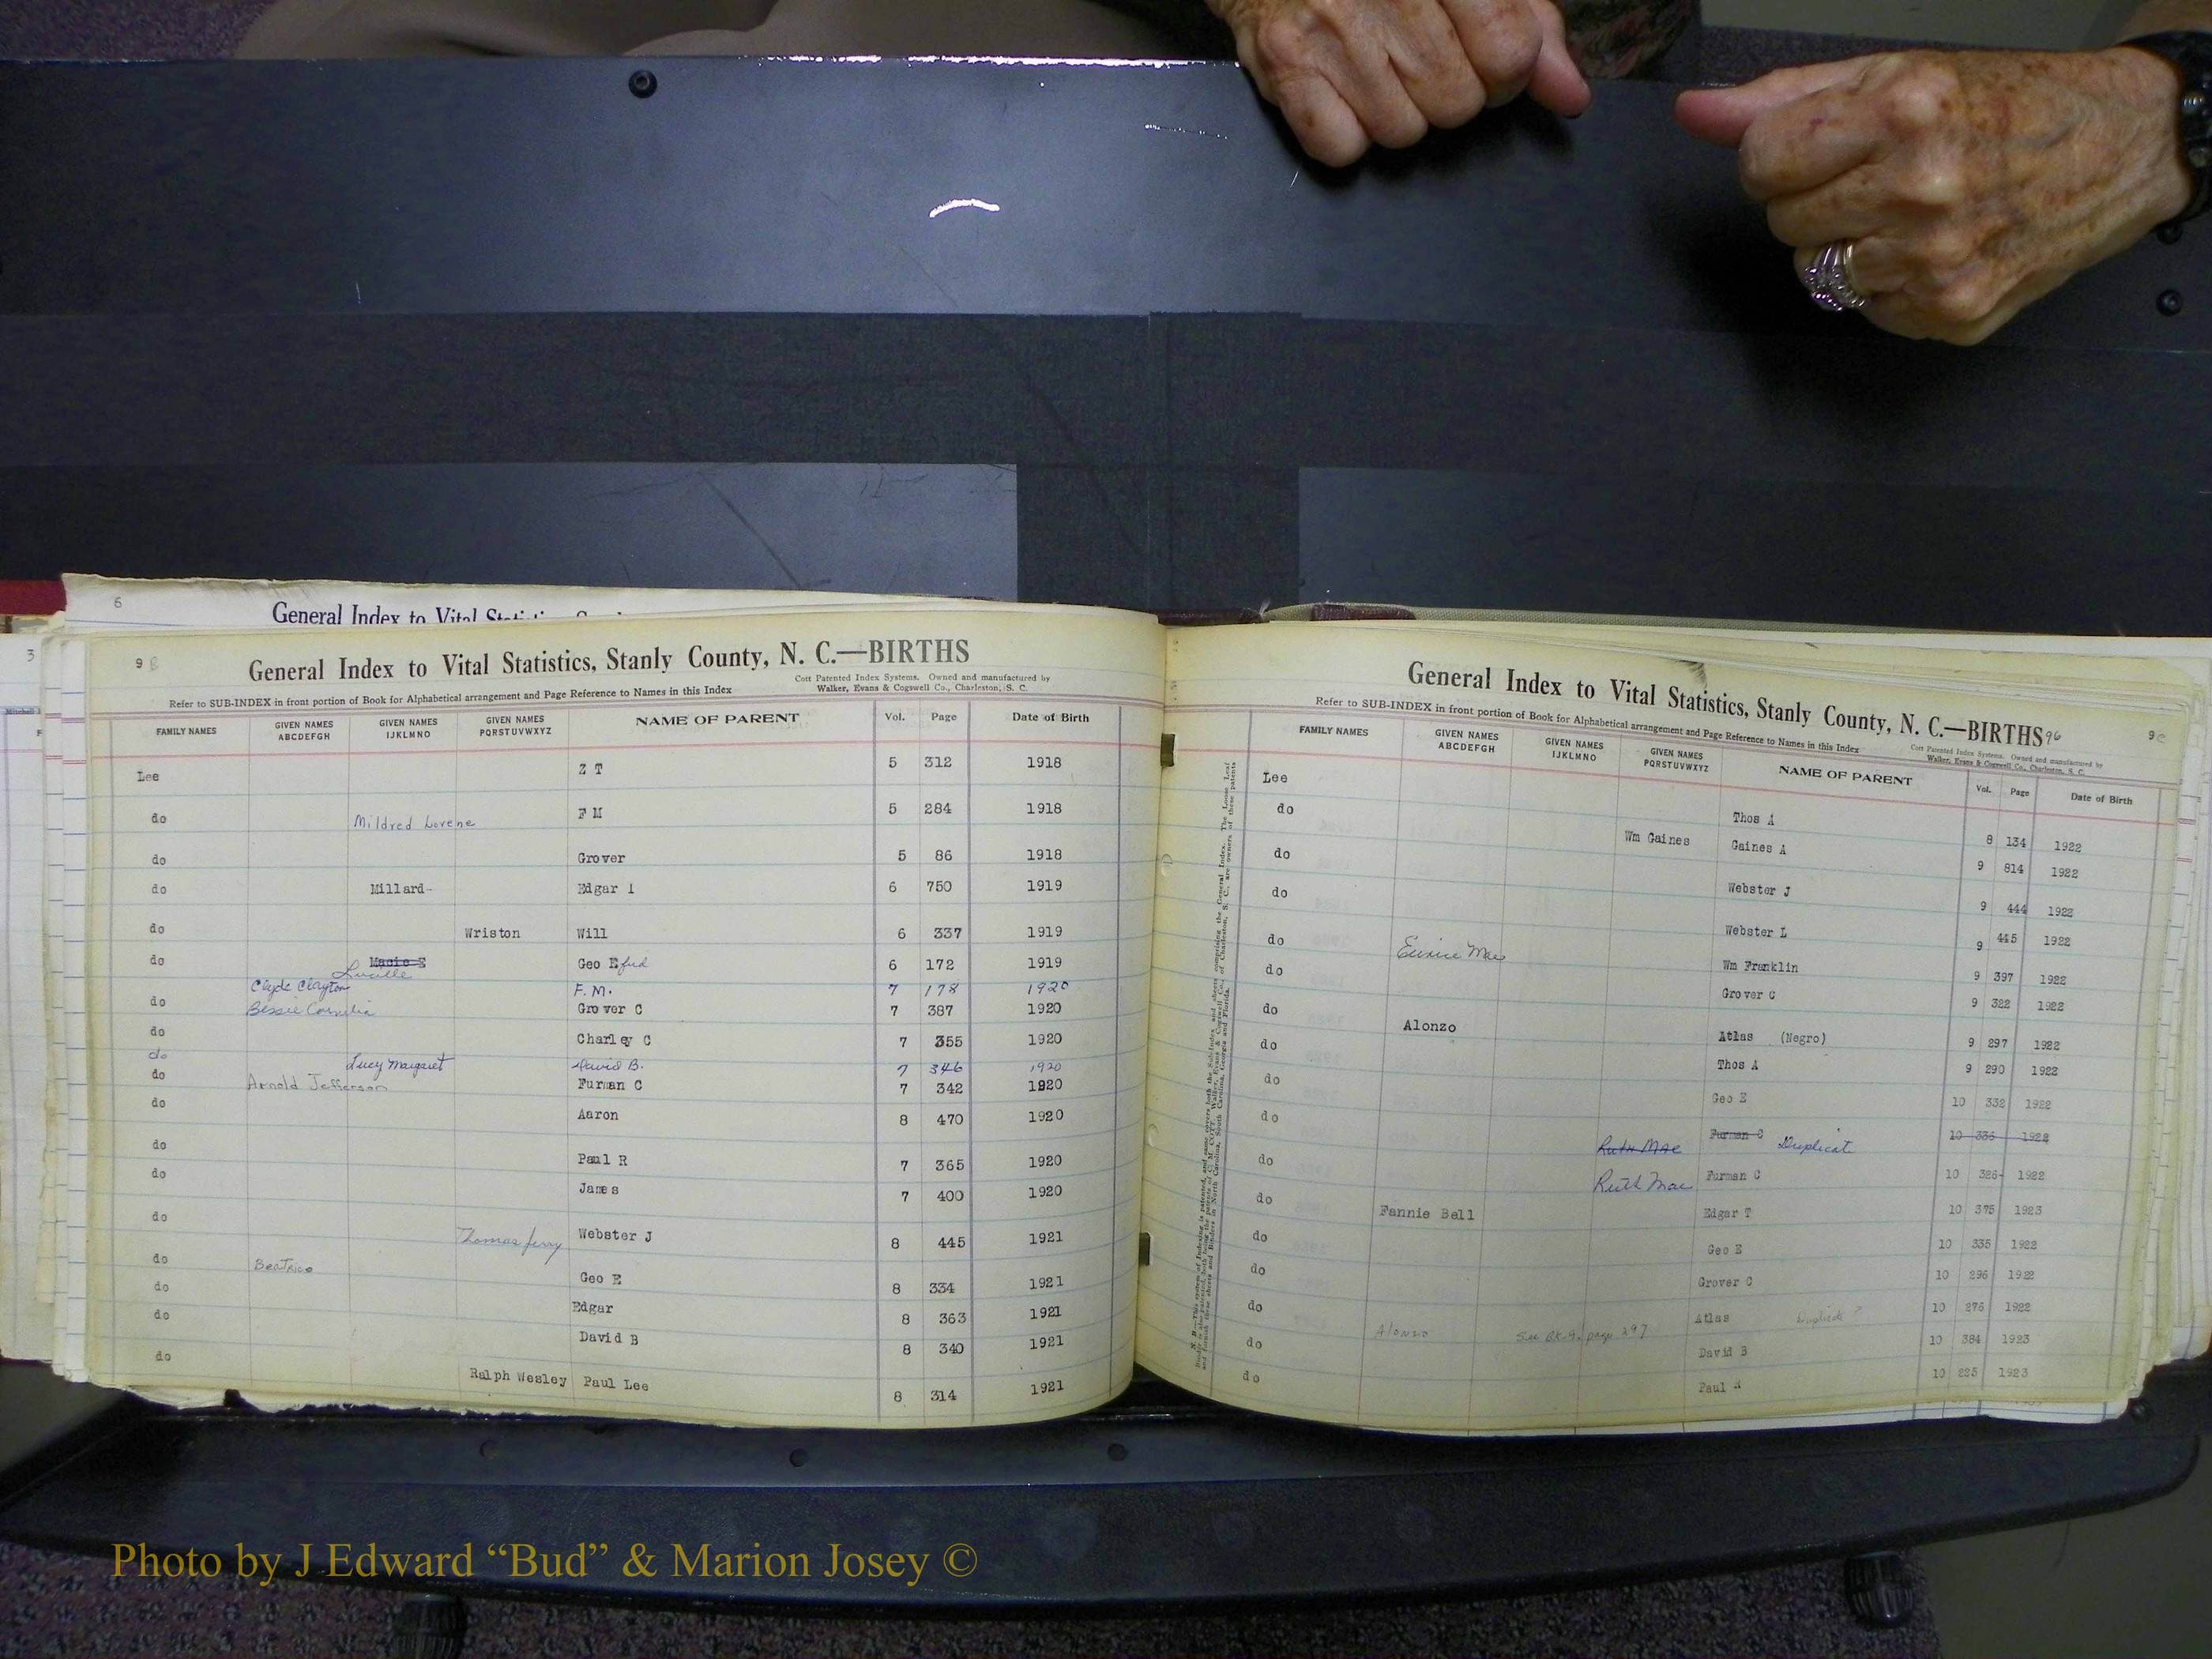 6
General Index to Vital
3
9 B
General Index to Vital Statistics, Stanly County, N. C.—BIRTHS
Cott Patented Index Systems. Owned and manufactured by
Refer to SUB-INDEX in front portion of Book for Alphabetical arrangement and Page Reference to Names in this Index
Walker, Evans & Cogswell Co., Charleston, S. C.
FAMILY NAMES GIVEN NAMES ABCDEFGH GIVEN NAMES IJKLMNO GIVEN NAMES PQRSTUVWXYZ NAME OF PARENT Vol. Page Date of Birth
Lee Z T 5 312 1918
do Mildred Lorene F M 5 284 1918
do Grover 5 86 1918
do Millard- Edgar I 6 750 1919
do Wriston Will 6 337 1919
do Macie E Lucille Geo Efud 6 172 1919
Clyde Clayton F. M. 7 178 1920
do Bessie Cornelia Grover C 7 387 1920
do Charley C 7 355 1920
do Lucy Margaret David B. 7 346 1920
do Arnold Jefferson Furman C 7 342 1920
do Aaron 8 470 1920
do Paul R 7 365 1920
do James 7 400 1920
do Thomas Jerry Webster J 8 445 1921
do Beatrice Geo E 8 334 1921
do Edgar 8 363 1921
do David B 8 340 1921
do Ralph Wesley Paul Lee 8 314 1921
General Index to Vital Statistics, Stanly County, N. C.—BIRTHS 96 9 C
Refer to SUB-INDEX in front portion of Book for Alphabetical arrangement and Page Reference to Names in this Index
Cott Patented Index Systems. Owned and manufactured by
Walker, Evans & Cogswell Co., Charleston, S. C.
FAMILY NAMES GIVEN NAMES ABCDEFGH GIVEN NAMES IJKLMNO GIVEN NAMES PQRSTUVWXYZ NAME OF PARENT Vol. Page Date of Birth
Lee Thos A 8 134 1922
do Wm Gaines Gaines A 9 814 1922
do Webster J 9 444 1922
do Webster L 9 445 1922
do Eunice Mae Wm Franklin 9 397 1922
do Grover C 9 322 1922
do Alonzo Atlas (Negro) 9 297 1922
do Thos A 9 290 1922
do Geo E 10 332 1922
do Ruth Mae Furman C Duplicate 10 336 1922
do Ruth Mae Furman C 10 326- 1922
do Fannie Bell Edgar T 10 375 1923
do Geo E 10 335 1922
do Grover C 10 296 1922
do Alonzo See Bk 9. page 297 Atlas Duplicate ? 10 276 1922
do David B 10 384 1923
do Paul R 10 225 1923
Photo by J Edward “Bud” & Marion Josey ©